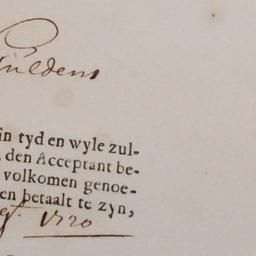 Guldens
in tyd en wyle zul-
den Acceptant be-
volkomen genoe-
en betaalt te zyn,
1720